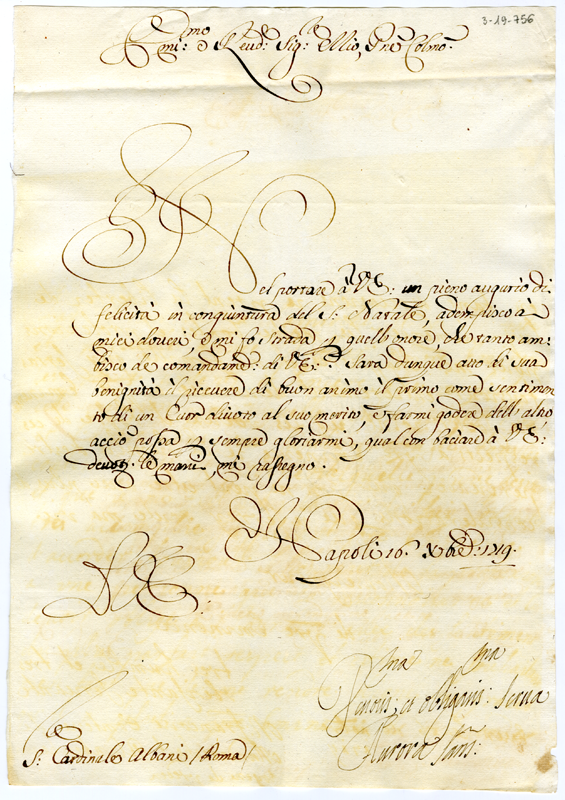 3-19-756
Em:mo e Reud:mo Sig:r Sig:r Pne Colmo:
Nel portare à V.E: un pieno augurio di
felicità in congiuntura del S: Natale, adempisco à
miei doueri, e mi fo strada p quell'onore, che tanto am-
bisco de comandam: di V.E: Sarà dunque atto di sua
benignità il riceuere di buon animo il primo come sentimen
to di un Cuor diuoto al suo merito, e farmi goder dell'altro
acciò possa p sempre gloriarmi, qual con baciare à V.E:
deuot: le mani, mi rassegno.
Napoli 16. Xbre: 1719.
D.V.E:
Deuotis:ma et obligatis:ma Serua
Aurora San:
S: Cardinale Albani / Roma /